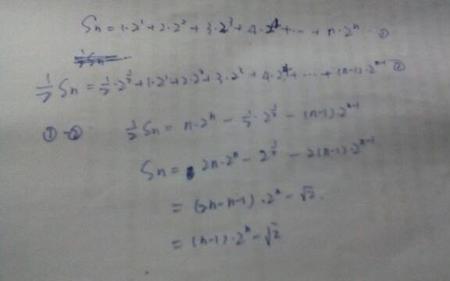 Sn = 1·2¹ + 2·2² + 3·2³ + 4·2⁴ + ... + n·2ⁿ ①
½Sn = ½·2^½ + 1·2¹ + 2·2² + 3·2³ + 4·2⁴ + ... + (n-1)·2ⁿ⁻¹ ②
①-② ½Sn = n·2ⁿ - ½·2^½ - (n-1)·2ⁿ⁻¹
Sn = 2n·2ⁿ - 2^½ - 2(n-1)·2ⁿ⁻¹
= (2n-n-1)·2ⁿ - √2
= (n-1)·2ⁿ - √2